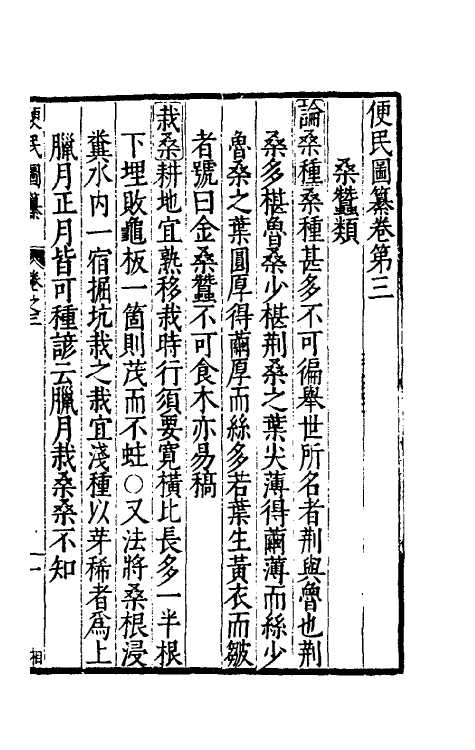 便民圖纂卷第三
桑蠶類
論桑種桑種甚多不可徧舉世所名者荆與魯也荆
桑多椹魯桑少椹荆桑之葉尖薄得繭薄而絲少
魯桑之葉圓厚得繭厚而絲多若葉生黃衣而皺
者號曰金桑蠶不可食木亦易槁
栽桑耕地宜熟移栽時行須要寬橫比長多一半根
下埋敗龜板一箇則茂而不蛀○又法將桑根浸
糞水內一宿掘坑栽之栽宜淺種以芽稀者爲上
臘月正月皆可種諺云臘月栽桑桑不知
便民圖纂 卷之三 一 相